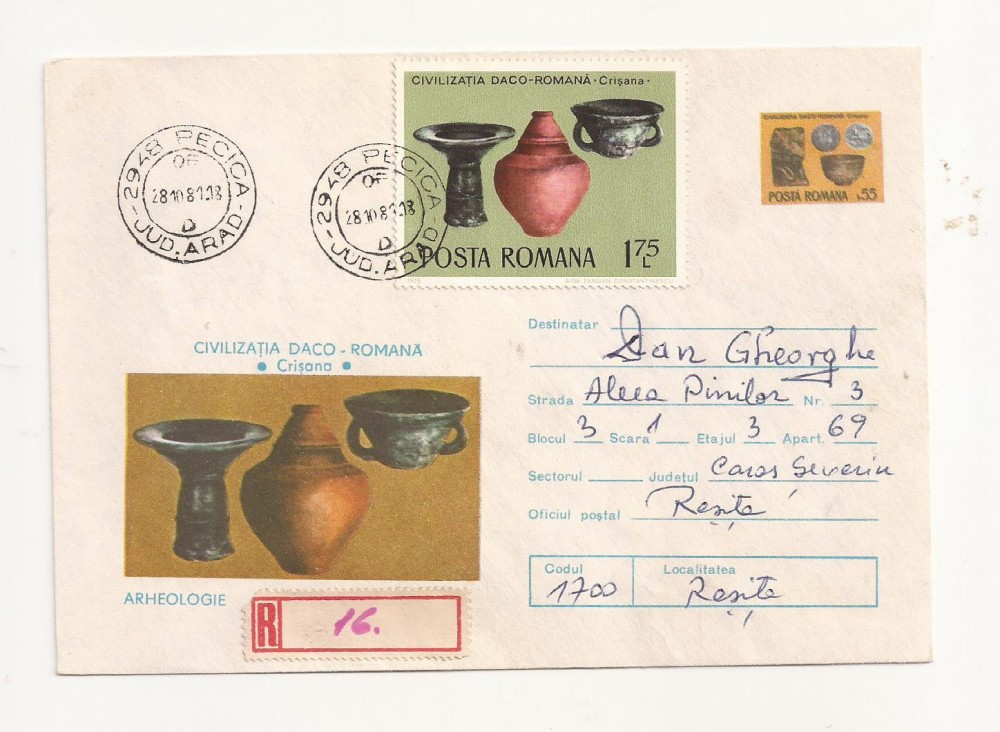 CIVILIZAȚIA DACO-ROMANĂ · Crișana ·
POSTA ROMANA 1 75 L
1976 AIDA TASGIAN CONSTANTINESCU
CIVILIZAȚIA DACO-ROMANĂ Crișana
POSTA ROMANA L 55
2948 PECICA
OF
28.10.81.18
D
-JUD. ARAD-
2948 PECICA
OF
28.10.81.18
D
-JUD. ARAD-
CIVILIZAȚIA DACO - ROMANĂ
• Crișana •
ARHEOLOGIE
R 16.
Destinatar Dan Gheorghe
Strada Aleea Pinilor Nr. 3
Blocul 3 Scara 1 Etajul 3 Apart. 69
Sectorul Județul Caraș Severin
Oficiul poștal Reșița
Codul Localitatea
1700 Reșița